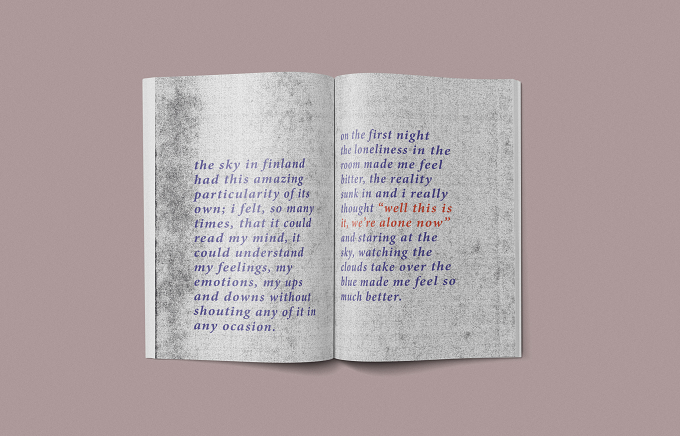 the sky in finland
had this amazing
particularity of its
own; i felt, so many
times, that it could
read my mind, it
could understand
my feelings, my
emotions, my ups
and downs without
shouting any of it in
any ocasion.
on the first night
the loneliness in the
room made me feel
bitter, the reality
sunk in and i really
thought “well this is
it, we're alone now”
and staring at the
sky, watching the
clouds take over the
blue made me feel so
much better.